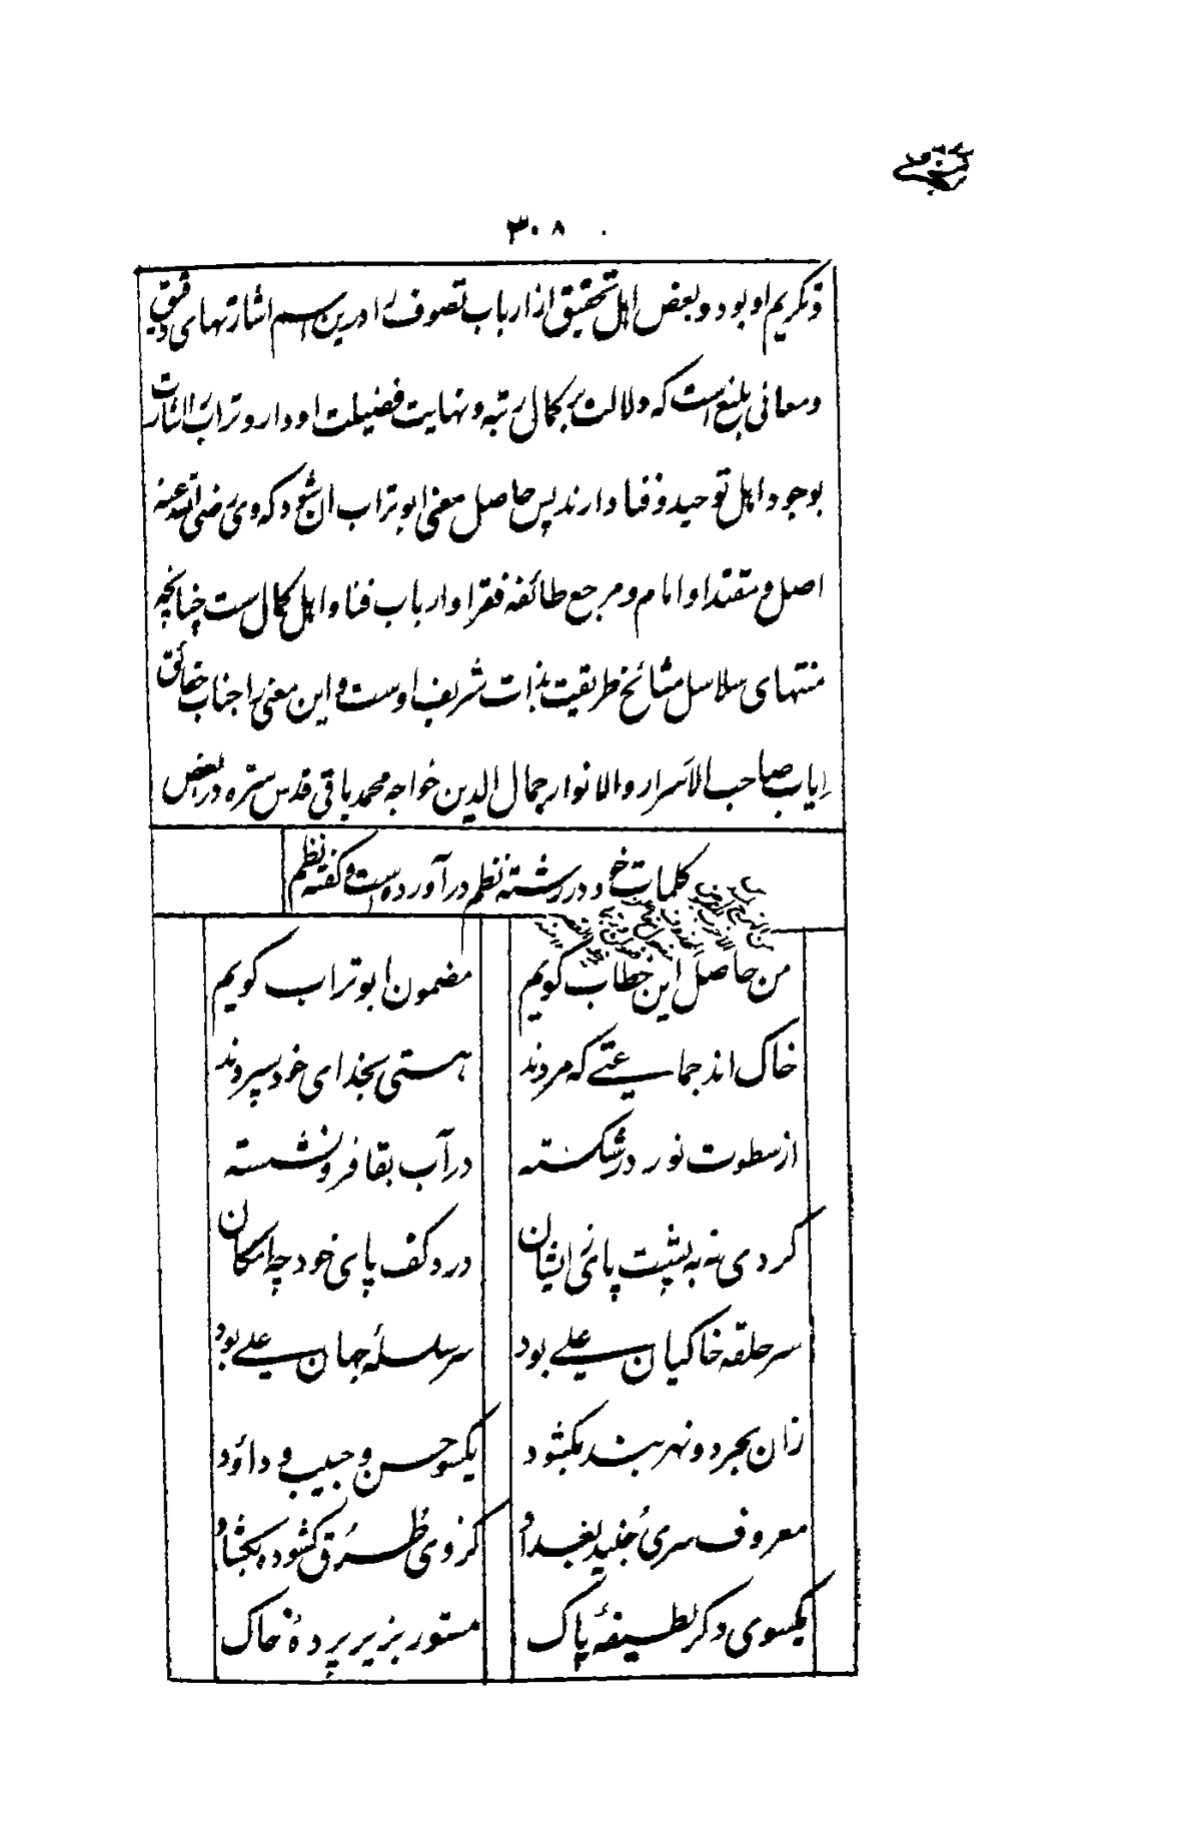 ۳۰۸
و تکریم او بود و بعض اهل تحقیق از ارباب تصوف را درین اسم اشارتهای دقیق
و معانی بلیغ است که دلالت بر کمال رتبه و نهایت فضیلت او دارد و تراب اشارت
بوجود اهل توحید و فنا دارند پس حاصل معنی ابو تراب ان شود که وی رضی الله عنه
اصل و مقتدا و امام و مرجع طائفه فقرا و ارباب فنا و اهل کمال ست چنانچه
منتهای سلاسل مشائخ طریقت بذات شریف اوست و این معنی را جناب حقائق
ایاب صاحب الاسرار والانوار جمال الدین خواجه محمد باقی قدس سره در بعض
کلمات خود در رشته نظم در آورده است و گفته نظم
من حاصل این خطاب گویم مضمون ابو تراب گویم
خاک اند جماعتی که مردند هستی بخدای خود سپردند
از سطوت نور در شکسته در آب بقا فرو نشسته
گردی نه به پشت پای ایشان درد کف پای خود چه امکان
سر حلقه خاکیان علی بود سر سلسلۀ جهان علی بود
زان بحر دو نهر بند بکشود یکسو حسن و حبیب و داؤد
معروف سری جنید بغداد کز وی طرق کشوده بکشاد
یکسوی دگر لطیفۀ پاک مستور بزیر پردۀ خاک